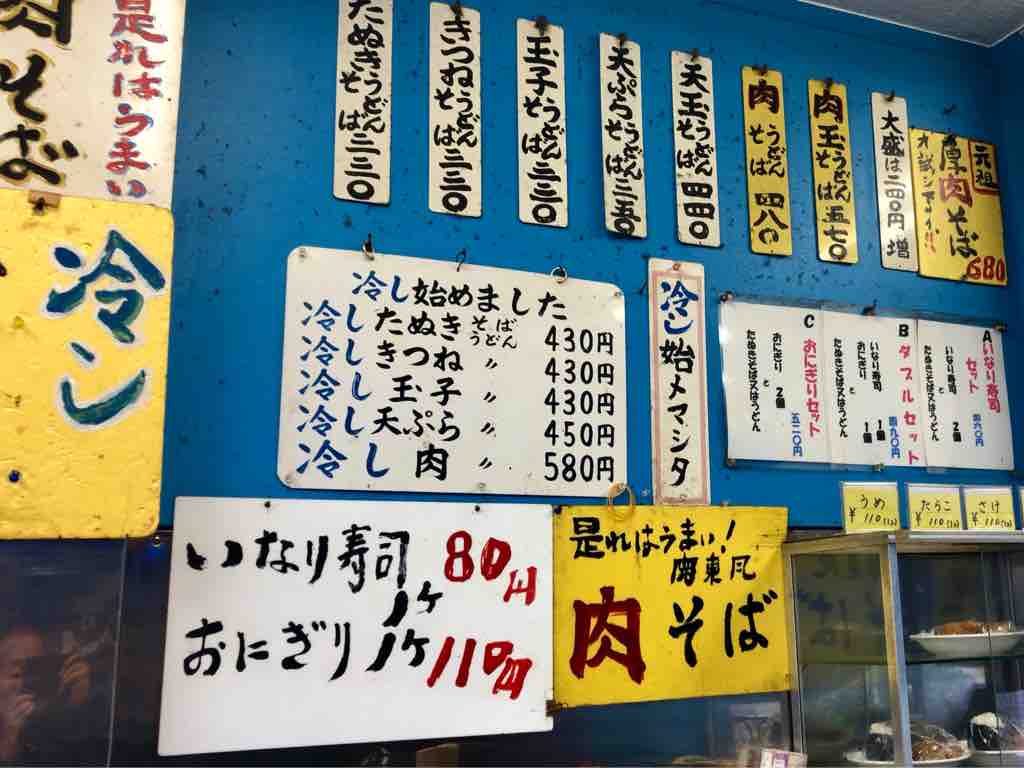 肉そば
是れはうまい
冷シ
たぬきうどんそば三三〇
きつねうどんそば三三〇
玉子うどんそば三三〇
天ぷらうどんそば三五〇
天玉うどんそば四四〇
肉うどんそば四八〇
肉玉うどんそば五七〇
大盛は二四〇円増
元祖
厚肉そば
680
冷し始めました
冷したぬきそばうどん 430円
冷しきつね 〃 430円
冷し玉子 〃 430円
冷し天ぷら 〃 450円
冷し肉 〃 580円
冷シ始メマシタ
A いなり寿司セット
四六〇円
いなり寿司 2個
と
たぬきそば又はうどん
B ダブルセット
四九〇円
いなり寿司 1個
おにぎり 1個
と
たぬきそば又はうどん
C おにぎりセット
五二〇円
おにぎり 2個
と
たぬきそば又はうどん
うめ
¥110(込)
たらこ
¥110(込)
さけ
¥110(込)
いなり寿司 1ケ 80円
おにぎり 1ケ 110円
是れはうまい!
関東風
肉そば